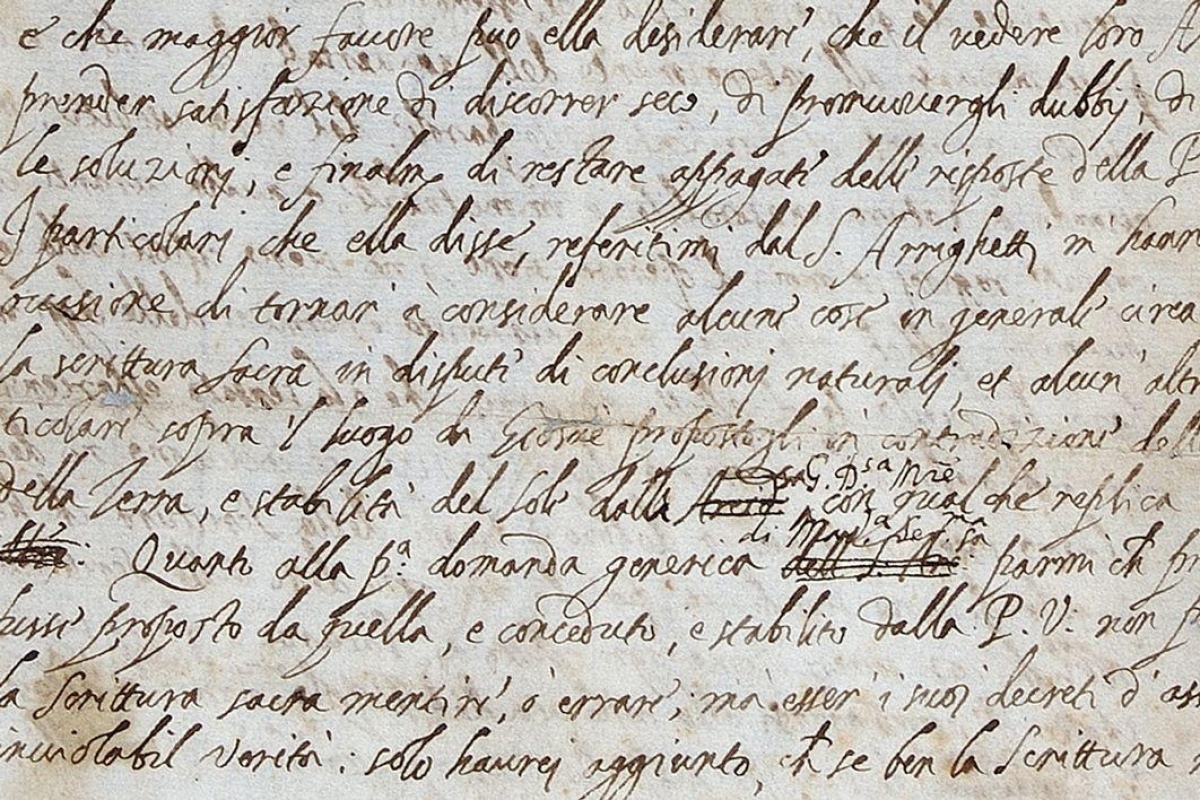 e che maggior favore può ella desiderare, che il vedere loro A
prender satisfazione di discorrer seco, di promuovergli dubbij, di
le soluzionj, e finalm. di restare appagate delle risposte della P
I particolarj che ella disse, referitimj dal S. Arrighetti, m' hann
occasione di tornar' à considerare alcune cose in generale circa
la scrittura sacra in dispute di conclusionj naturalj, et alcun' alt
ticolare sopra 'l luogo di Giosuè propostogli in contradizione dell
della Terra, e stabilità del Sole dalla G. D.sa M.re con qualche replica
di Mad.a Ser.ma
Quanto alla p.a domanda generica parmi ch pr
busse proposto da quella, e conceduto, e stabilito dalla P. V. non p
la Scrittura sacra mentire, ò errare; ma esser' i suoi decreti d' as
inviolabil verità: solo haurej aggiunto, ch se ben la Scrittura n